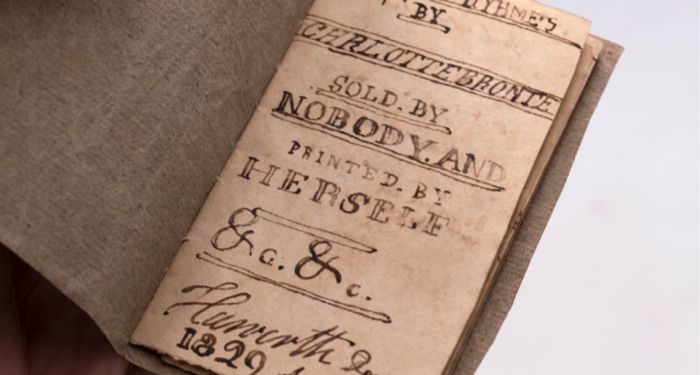 RYHMES
BY
CHARLOTTE BRONTE
SOLD. BY
NOBODY. AND
PRINTED. BY
HERSELF
&c. &c.
Haworth
1829